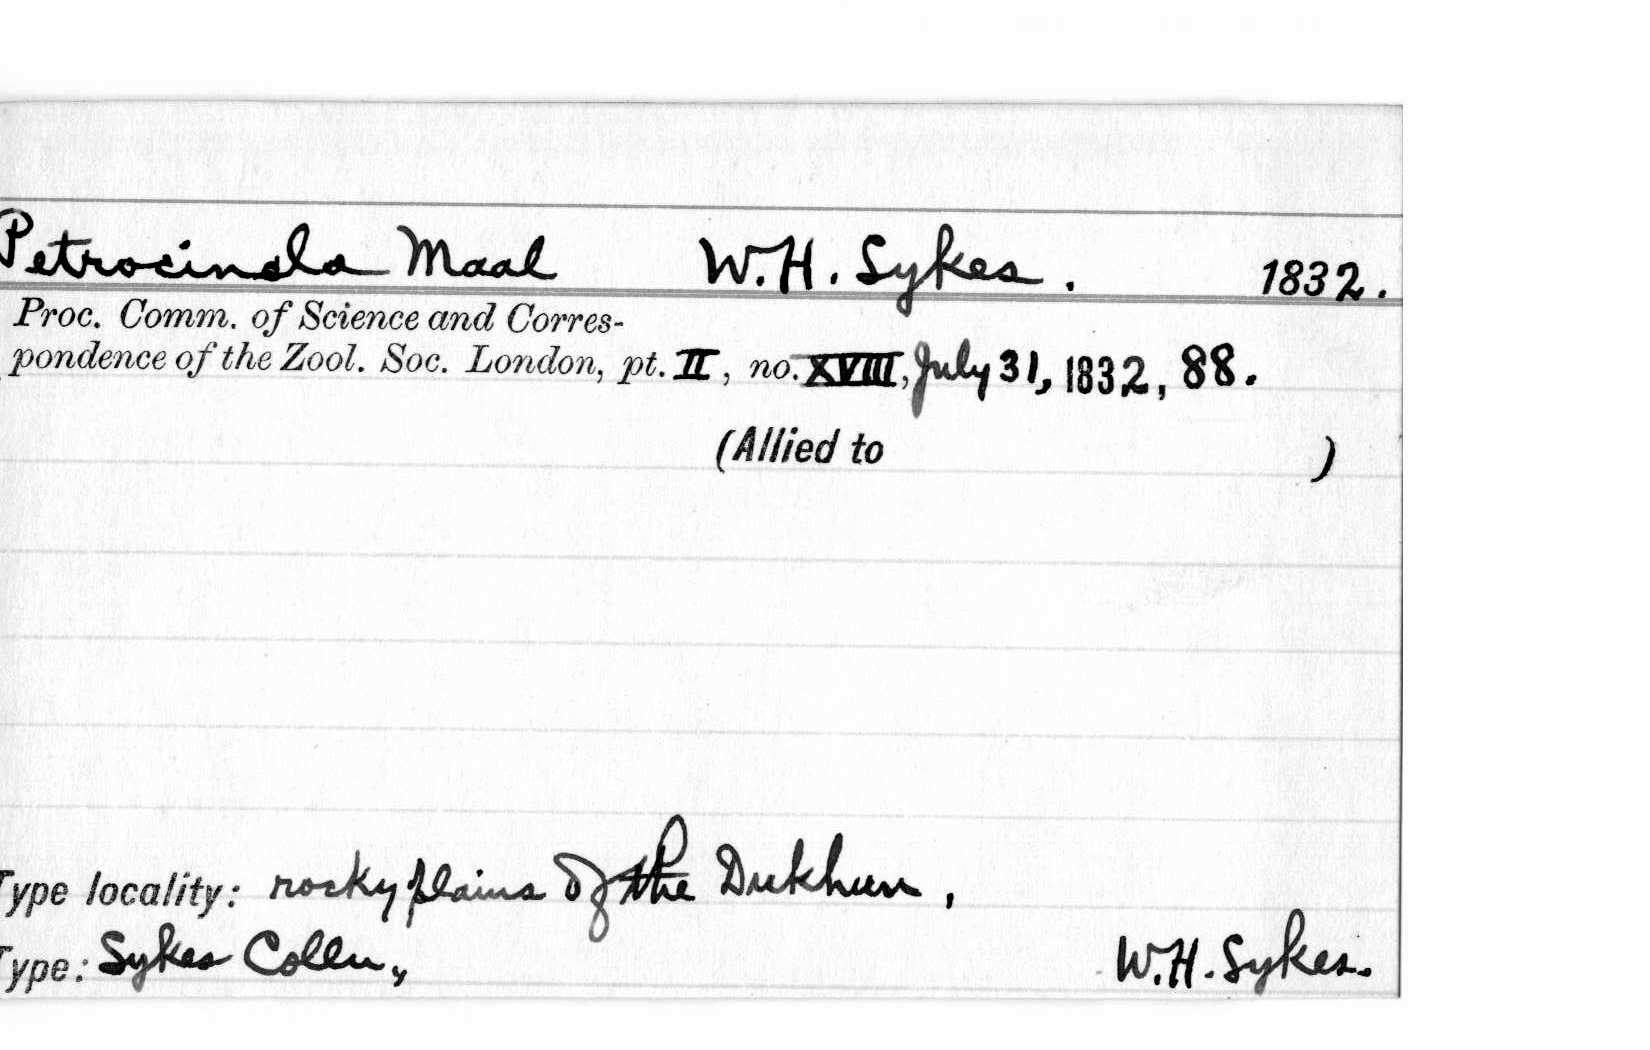 Petrocincla Maal W.H. Sykes. 1832.
Proc. Comm. of Science and Corres-
pondence of the Zool. Soc. London, pt. II, no. XVIII, July 31, 1832, 88.
(Allied to )
Type locality: rocky plains of the Dukhun,
Type: Sykes Colln., W.H. Sykes.